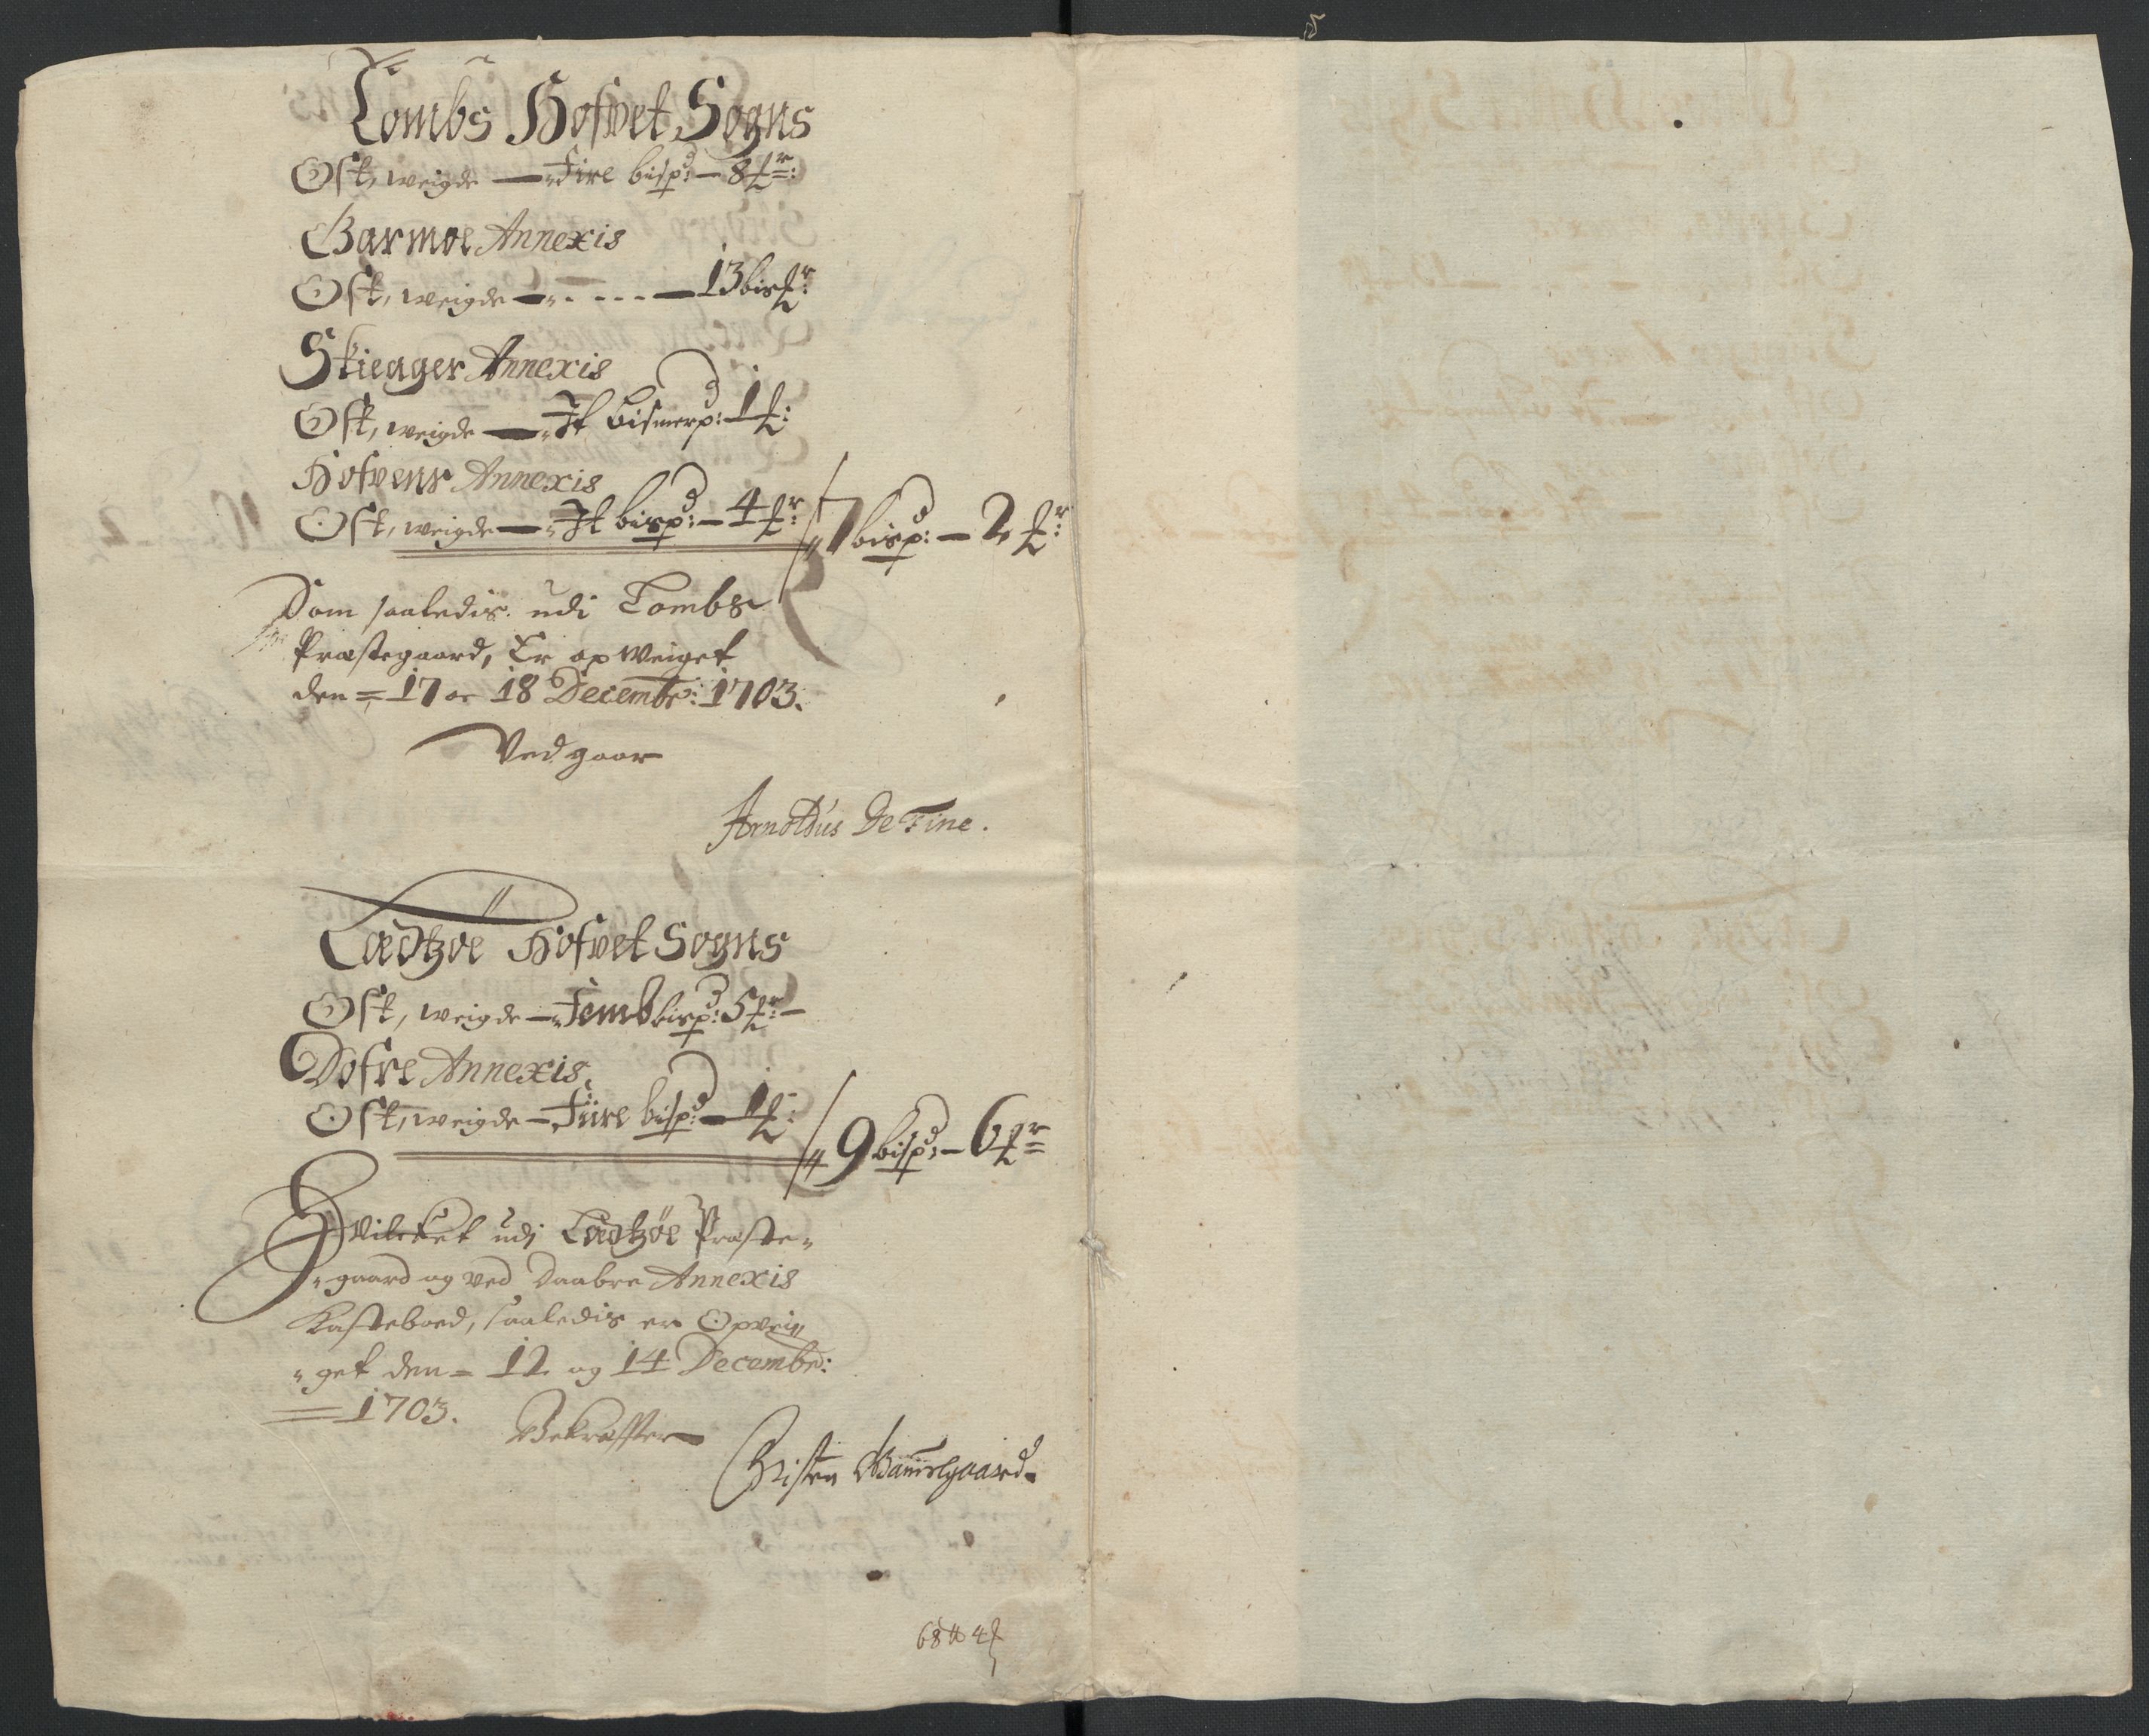 Lombs Hofvet Sogns
Ost, weigde — Fire bisp:d — 8 ℔r:
Garmoe Annexis
Ost, weigde — . - - - — 13 bis℔r:
Skieager Annexis
Ost, weigde — It bismerp:d 1 ℔:
Hofvens Annexis
Ost, weigde — It bisp:d — 4 ℔r: // 7 bisp:d — 2 ℔r:
Som saaledis udi Lombs
Præstegaard, Er op weiget
den = 17 oc 18 Decembr: 1703.
Ved gaar
Arnoldus De Fine.
Lædtzøe Hofvet Sogns
Ost, weigde — Femb bisp:d 5 ℔r: —
Dofre Annexis
Ost, weigde — Fiire bisp:d — 1 ℔: // 9 bisp:d — 6 ℔r
Hvilcket udj Lædtzøe Præste-
-gaard og ved Daabre Annexis
saaledis er Opvei-
-get den = 12 og 14 Decembr:
1703.
Bekræffter
Christen
68 ℔ 4